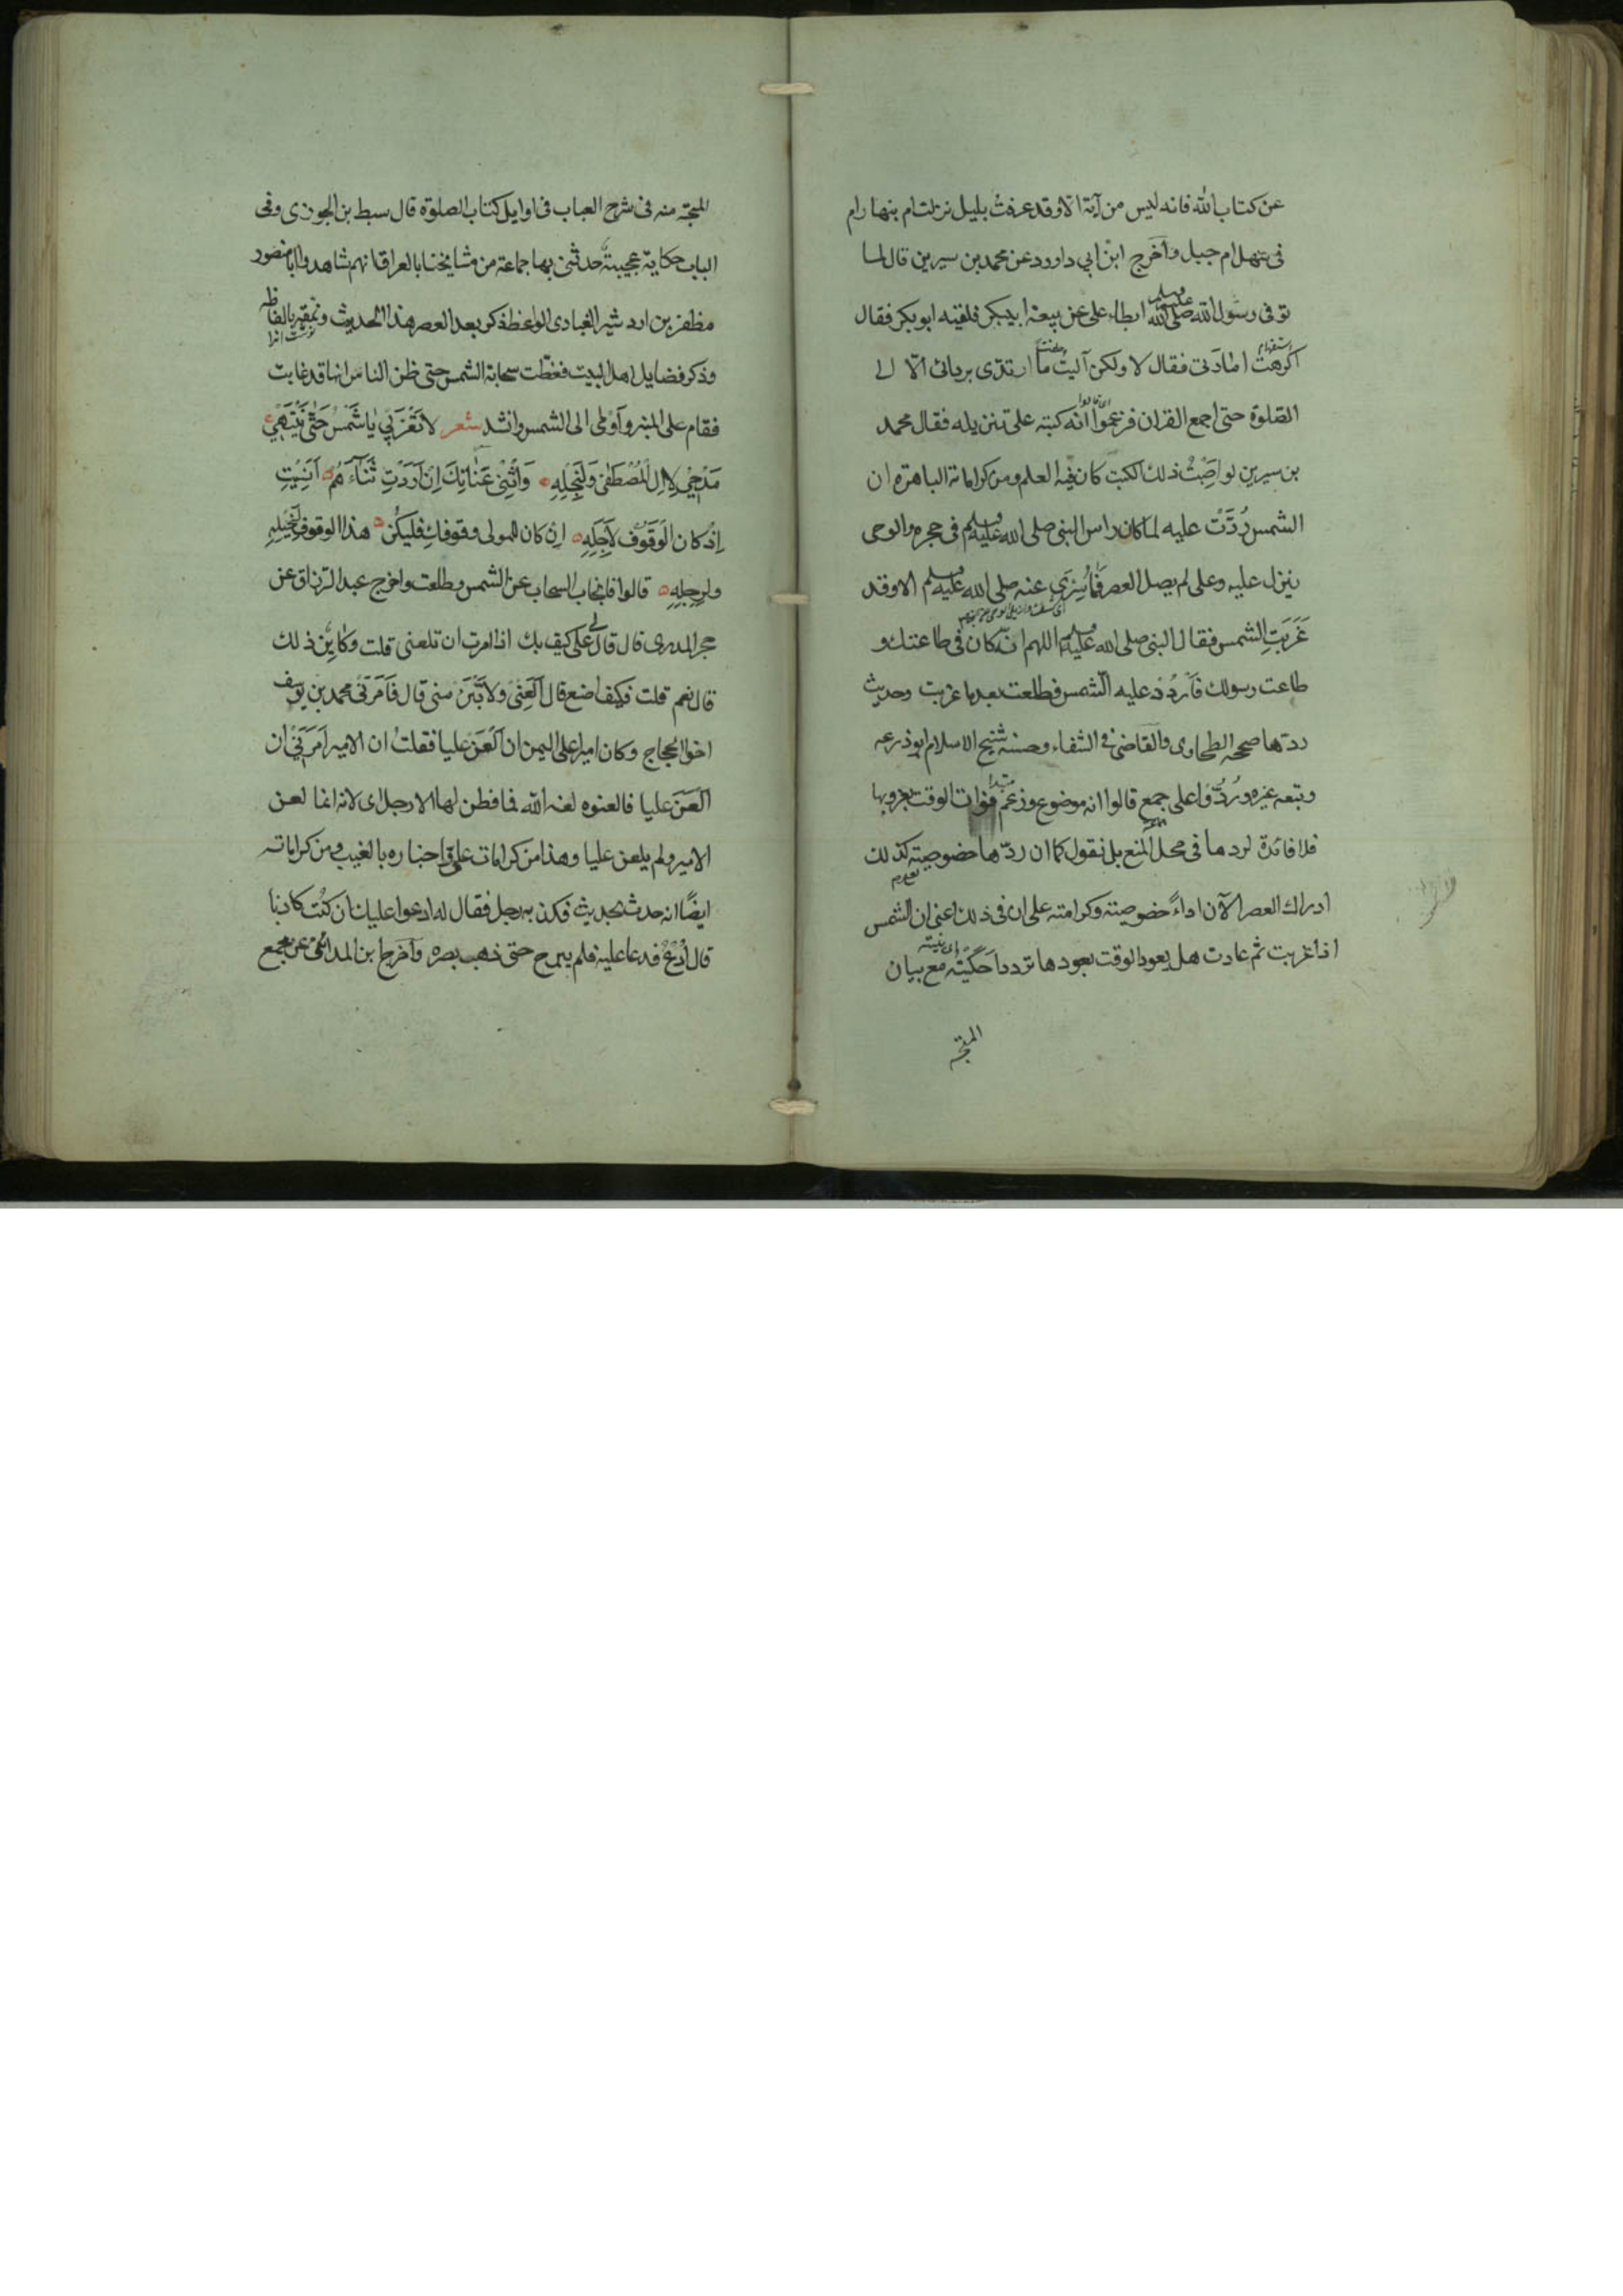 عن كتاب الله فانه ليس من آية الا وقد عرفت بليل نزلت ام بنهار ام
فى سهل ام جبل واخرج ابن ابي داوود عن محمد بن سيرين قال لما
توفى رسول الله صلى الله عليه وسلم ابطاء على عن بيعة ابيبكر فلقيه ابو بكر فقال
استفهام
اكرهت امارتى فقال لا ولكن آليت ما ارتدى بردائى الّا الى
الصّلوة حتى اجمع القران فزعموا انه كتبه على تنزيله فقال محمد
اى قالوا
بن سيرين لو اصبت ذلك الكتب كان فيه العلم ومن كراماته الباهرة ان
الشمس رُدَّتْ عليه لما كان راس النبى صلى الله عليه وسلم فى حجره والوحى
ينزل عليه وعلى لم يصل العصر فما سُرِّىَ عنه صلى الله عليه وسلم الا وقد
غَرَبَتِ الشمس فقال النبى صلى الله عليه وسلم اللهم انه كان فى طاعتك و
طاعت رسولك فَارْدُدْ عليه الشمس فطلعت بعد ما غربت وحديث
ردّها صححه الطحاوى والقاضى فى الشفاء وحسنه شيخ الاسلام ابوذرعه
وتبعه غيره ورُدُّوا على جمع قالوا انه موضوع وزعم فوات الوقت بغروبها
مبتدا
فلا فائدة لردها فى محل المنع بل نقول كما ان ردّها خصوصيته كذلك
ادراك العصر الآن اداءً خصوصيته وكرامته على ان فى ذلك اعنى ان الشمس
اذا غربت ثم عادت هل يعود الوقت بعودها تردد احَكَيْتُه مع بيان
المتجه
المتجه منه فى شرح العباب فى اوايل كتاب الصلوة قال سبط بن الجوزى وفى
الباب حكاية عجيبة حدثنى بها جماعة من مشايخنا بالعراق انهم شاهدوا ابا منصور
مظفر بن اردشير العبادى الواعظ ذكر بعد العصر هذا الحديث ونمقه بالفاظه
وذكر فضايل اهل البيت فغطّت سحابة الشمس حتى ظن الناس انها قد غابت
فقام على المنبر وَاَوْمٰى الى الشمس وانشد شعر لاَ تَغْرُبِي يٰا شَمْسُ حَتّٰى يَنْتَهِيْ
مَدْحِيْ لاِٰلِ الْمُصْطَفٰى وَلِنَجْلِهِ وَاَثْنِىْ عِنٰانَكِ اِنْ اَرَدْتِ ثَنَآءَهُمْ اَنَسِيْتِ
اِذْ كان الْوُقُوْف لِاَجْلِهِ اِنْ كان للمولى وقوفك فليَكُنْ هذا الوقوف لِخَيْلِهِ
ولِرَجِلِهِ قالوا فانجاب السحاب عن الشمس وطلعت واخرج عبد الرزاق عن
حجر المدرى قال قال لى على كيف بك اذا امرت ان تلعنى قلت وكاين ذلك
قال نعم قلت فكيف اصنع قال اَلْعِنِّى ولا تَبَرَّ منى قال فَاَمَرَنِى محمد بن يوسف
اخو الحجاج وكان اميرا على اليمن ان اَلْعَنَ عليا فقلت ان الامير اَمَرَنِى ان
اَلْعَنَ عليا فالعنوه لعنه الله فما فطن لها الا رجل اى لانه انما لعن
الامير ولم يلعن عليا وهذا من كرامات على واخباره بالغيب ومن كراماته
ايضًا انه حدث بحديث فكذبه رجل فقال له ادعوا عليك ان كنت كاذبا
قال اُدْعُ فدعا عليه فلم يبرح حتى ذهب بصره واخرج ابن المدائنى عن مجمع